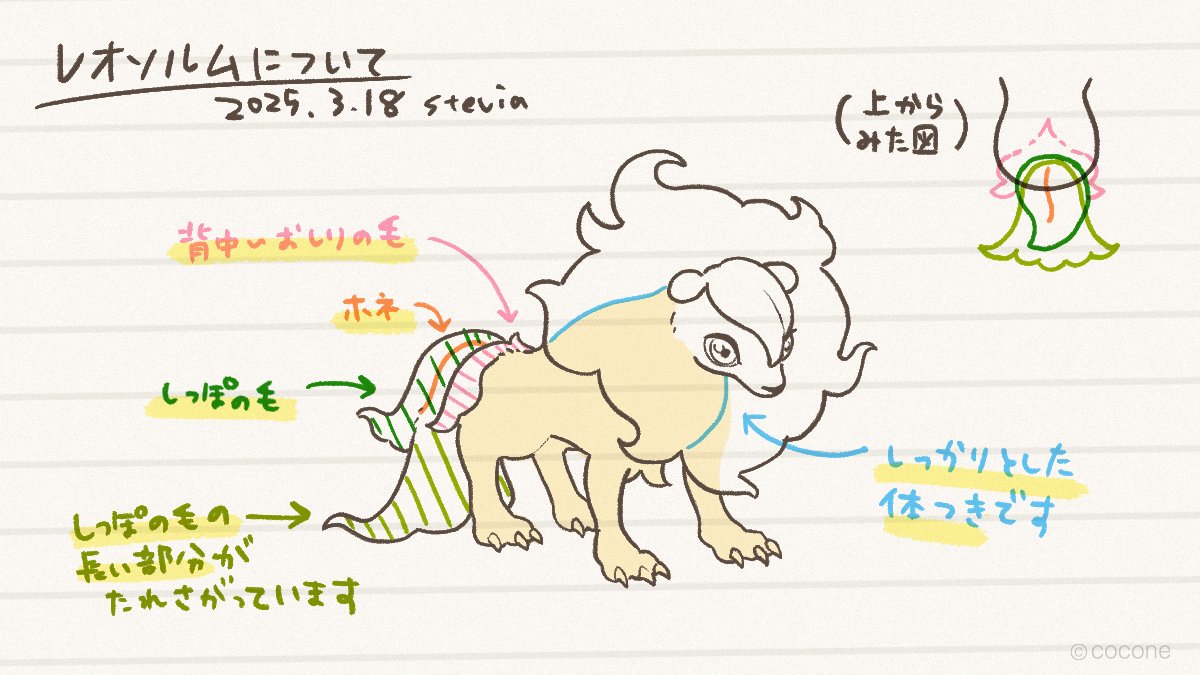 レオソルムについて
2025.3.18 stevia
(上から
みた図)
背中〜おしりの毛
ホネ
しっぽの毛
しっかりとした
体つきです
しっぽの毛の
長い部分が
たれさがっています
©cocone